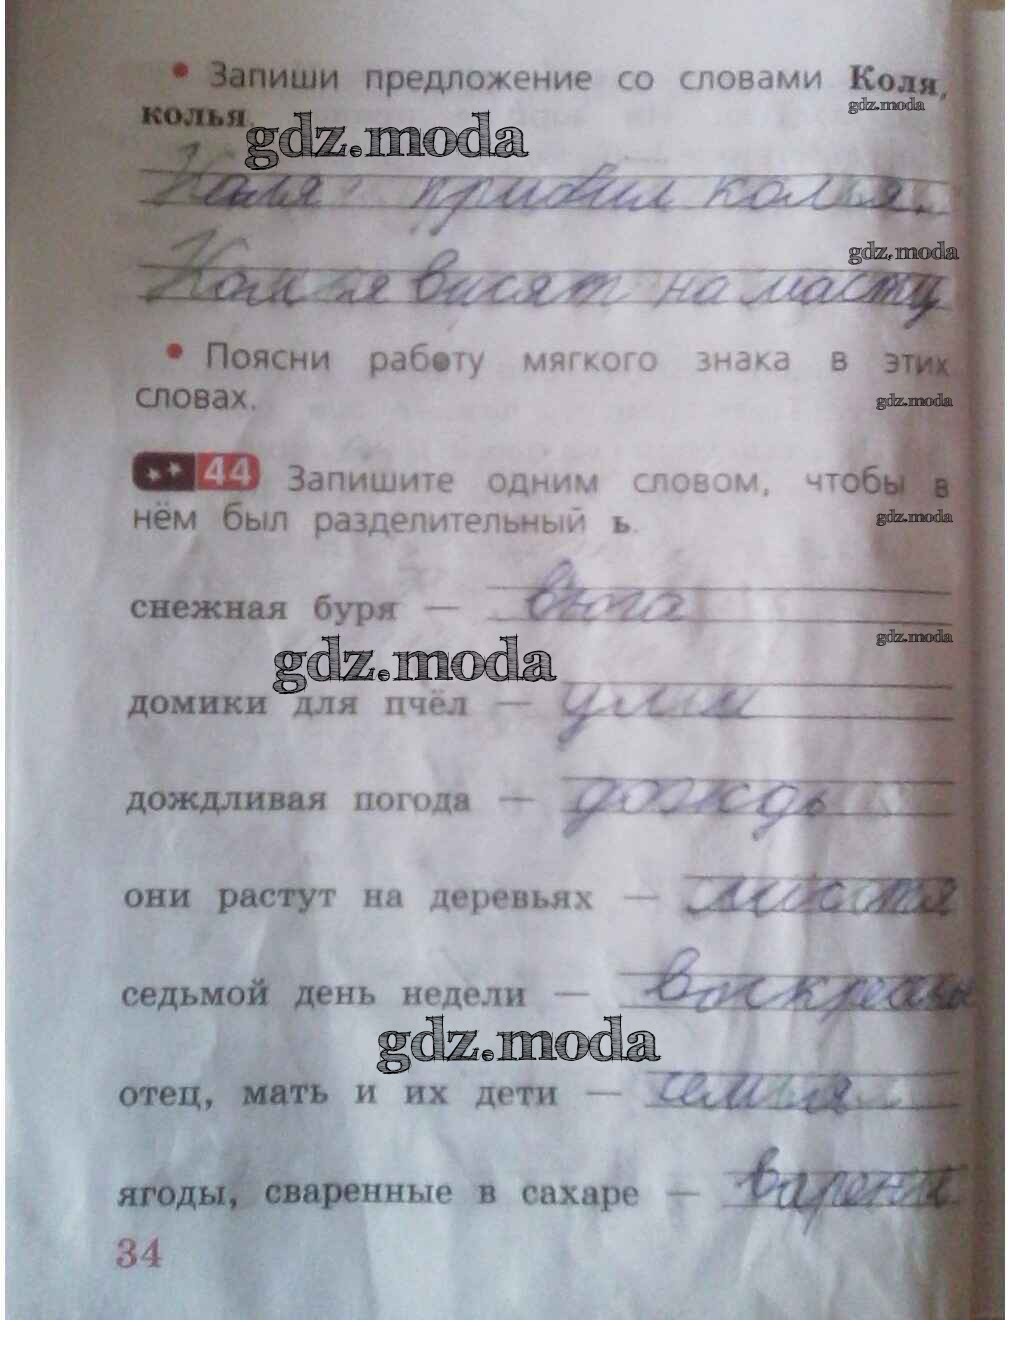 • Запиши предложение со словами Коля,
gdz.moda
колья.
gdz.moda
Коля прибил колья.
gdz.moda
Колья висят на масту
• Поясни работу мягкого знака в этих
словах.
gdz.moda
44 Запишите одним словом, чтобы в
нём был разделительный ь.
gdz.moda
снежная буря — вьюга
gdz.moda
gdz.moda
домики для пчёл — ульи
дождливая погода — дождь
они растут на деревьях — листья
седьмой день недели —
gdz.moda
отец, мать и их дети — семья
ягоды, сваренные в сахаре —
34